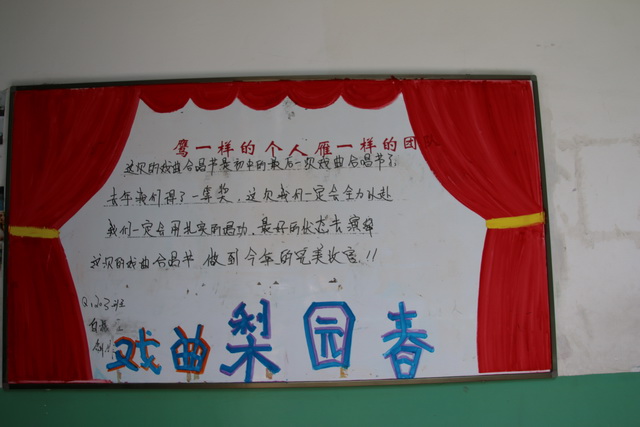 鹰一样的个人雁一样的团队
这次的戏曲合唱节是初中的最后一次戏曲合唱节了,
去年我们得了一等奖,这次我们一定会全力以赴
我们一定会用扎实的唱功,最好的状态去演绎
这次的戏曲合唱节 做到今年的完美收官!!
戏曲梨园春